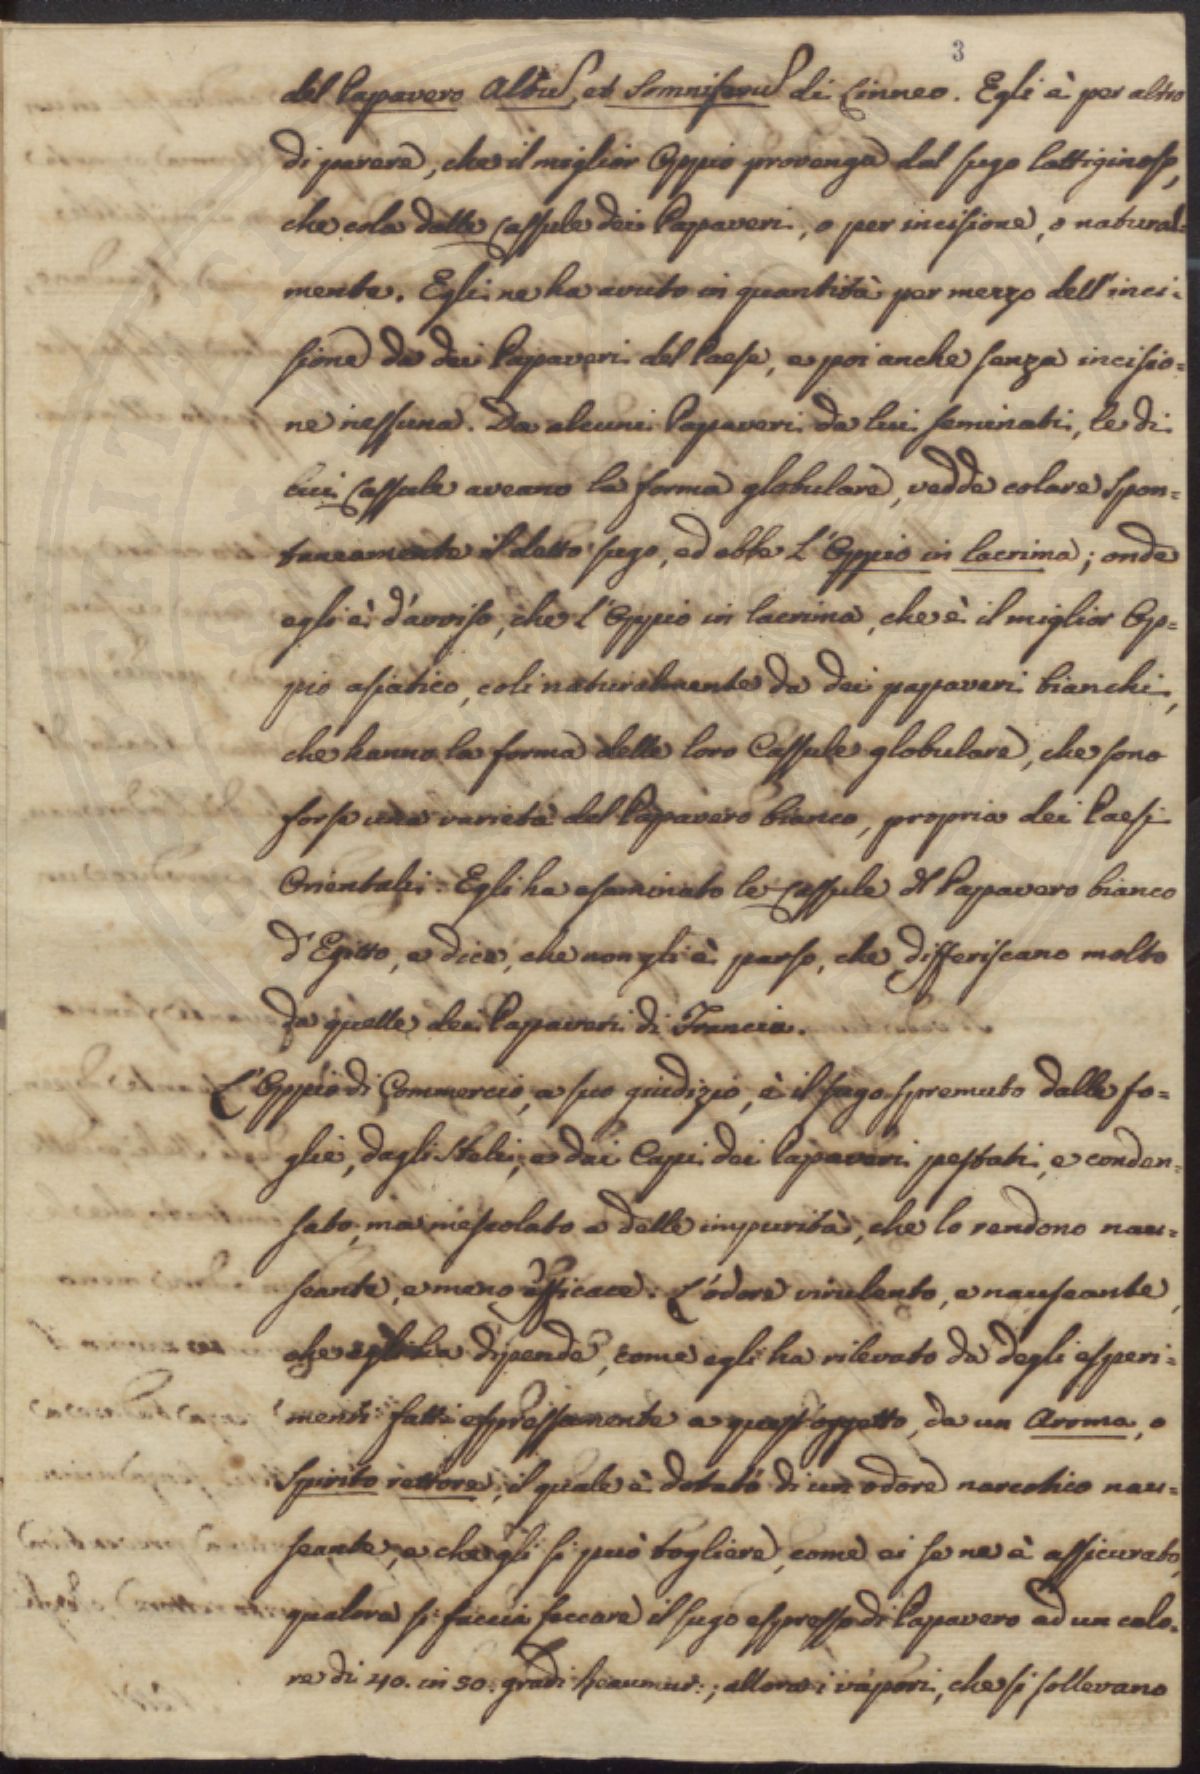 3
del Papavero Albus, et Somniferus di Linneo. Egli è per altro
di parere, che il miglior Oppio provenga dal sugo lattiginoso,
che cola dalle Cassule dei Papaveri, o per incisione, o natural=
mente. Egli ne ha avuto in quantità per mezzo dell'inci=
sione da dei Papaveri del Paese, e poi anche senza incisio=
ne nessuna. Da alcuni Papaveri da lui seminati, le di
cui Cassule aveano la forma globulare, vedde colare spon=
taneamente il detto sugo, ed ebbe l'Oppio in lacrima; onde
egli è d'avviso, che l'Oppio in lacrima, che è il miglior Op=
pio asiatico, coli naturalmente da dei papaveri bianchi,
che hanno la forma delle loro Cassule globulare, che sono
forse una varietà del Papavero bianco, propria dei Paesi
Orientali. Egli ha esaminato le Cassule del Papavero bianco
d'Egitto, e dice, che non gli è parso, che differiscano molto
da quelle dei Papaveri di Francia.
L'Oppio di Commercio, a suo giudizio, è il sugo spremuto dalle fo=
glie, dagli Steli, e dai Capi dei Papaveri pestati, e conden=
sato, ma mescolato a delle impurità, che lo rendono nau=
seante, e meno efficace. L'odore virulento, e nauseante,
che egli ha dipende, come egli ha rilevato da degli esperi=
menti fatti espressamente a quest'oggetto, da un Aroma, o
Spirito rettore, il quale è dotato di un odore narcotico nau=
seante, e che gli si può togliere, come ei se ne è assicurato,
qualora si faccia seccare il sugo espresso di Papavero ad un calo=
re di 40. in 50. gradi Reaumur.; allora i vapori, che si sollevano